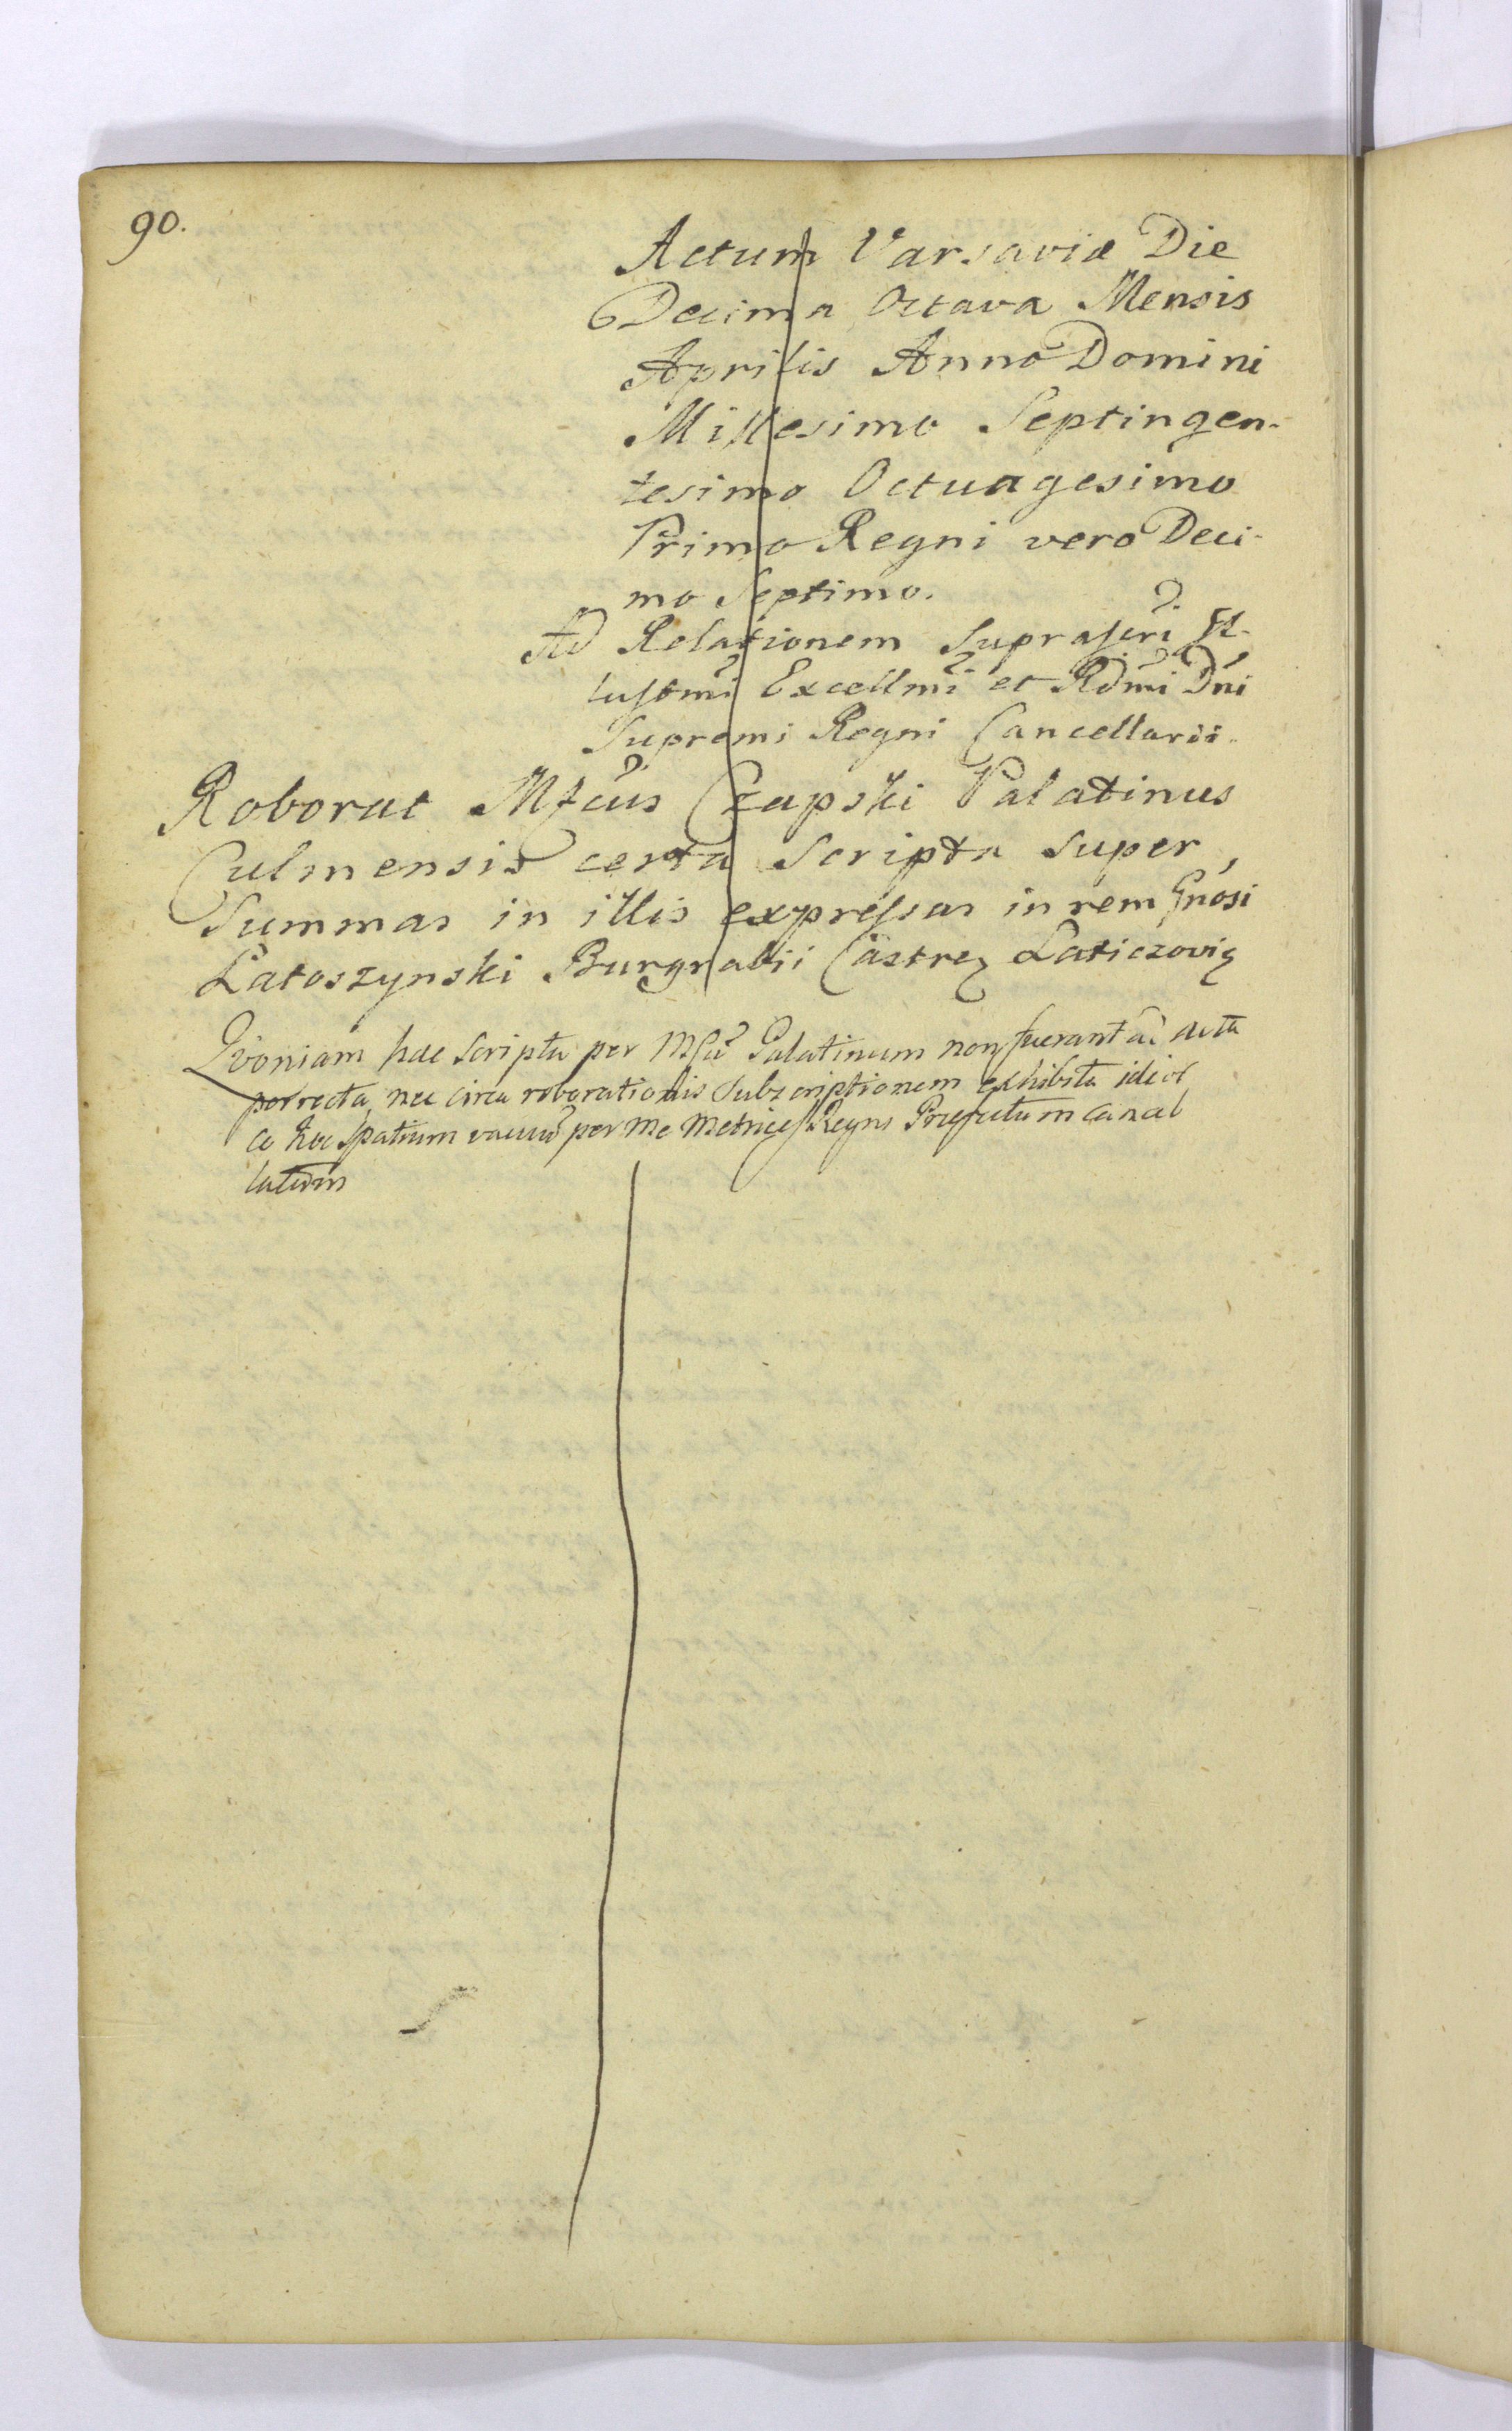 90.
Actum Varsaviæ Die
Decima Octava Mensis
Aprilis Anno Domini
Millesimo Septingen-
tesimo Octuagesimo
Primo Regni vero Deci-
mo Septimo.
Ad Relationem Suprascri Il-
lustmi Excellmi et Rdmi Dni
Supremi Regni Cancellarii.
Roborat Mfcus Czapski Palatinus
Culmensis certa Scripta super,
Summas in illis expressas in rem Gnosi
Latoszynski Burgrabii Castreę Laticzovię
Qvoniam hac Scripta per Mfcu Palatinum non fuerant ad acta
porrecta, nec circa roborationis Subscriptionem exhibita idcir
co hoc Spatium vacuu per me Metrices Regni Prefectum cancel
latum